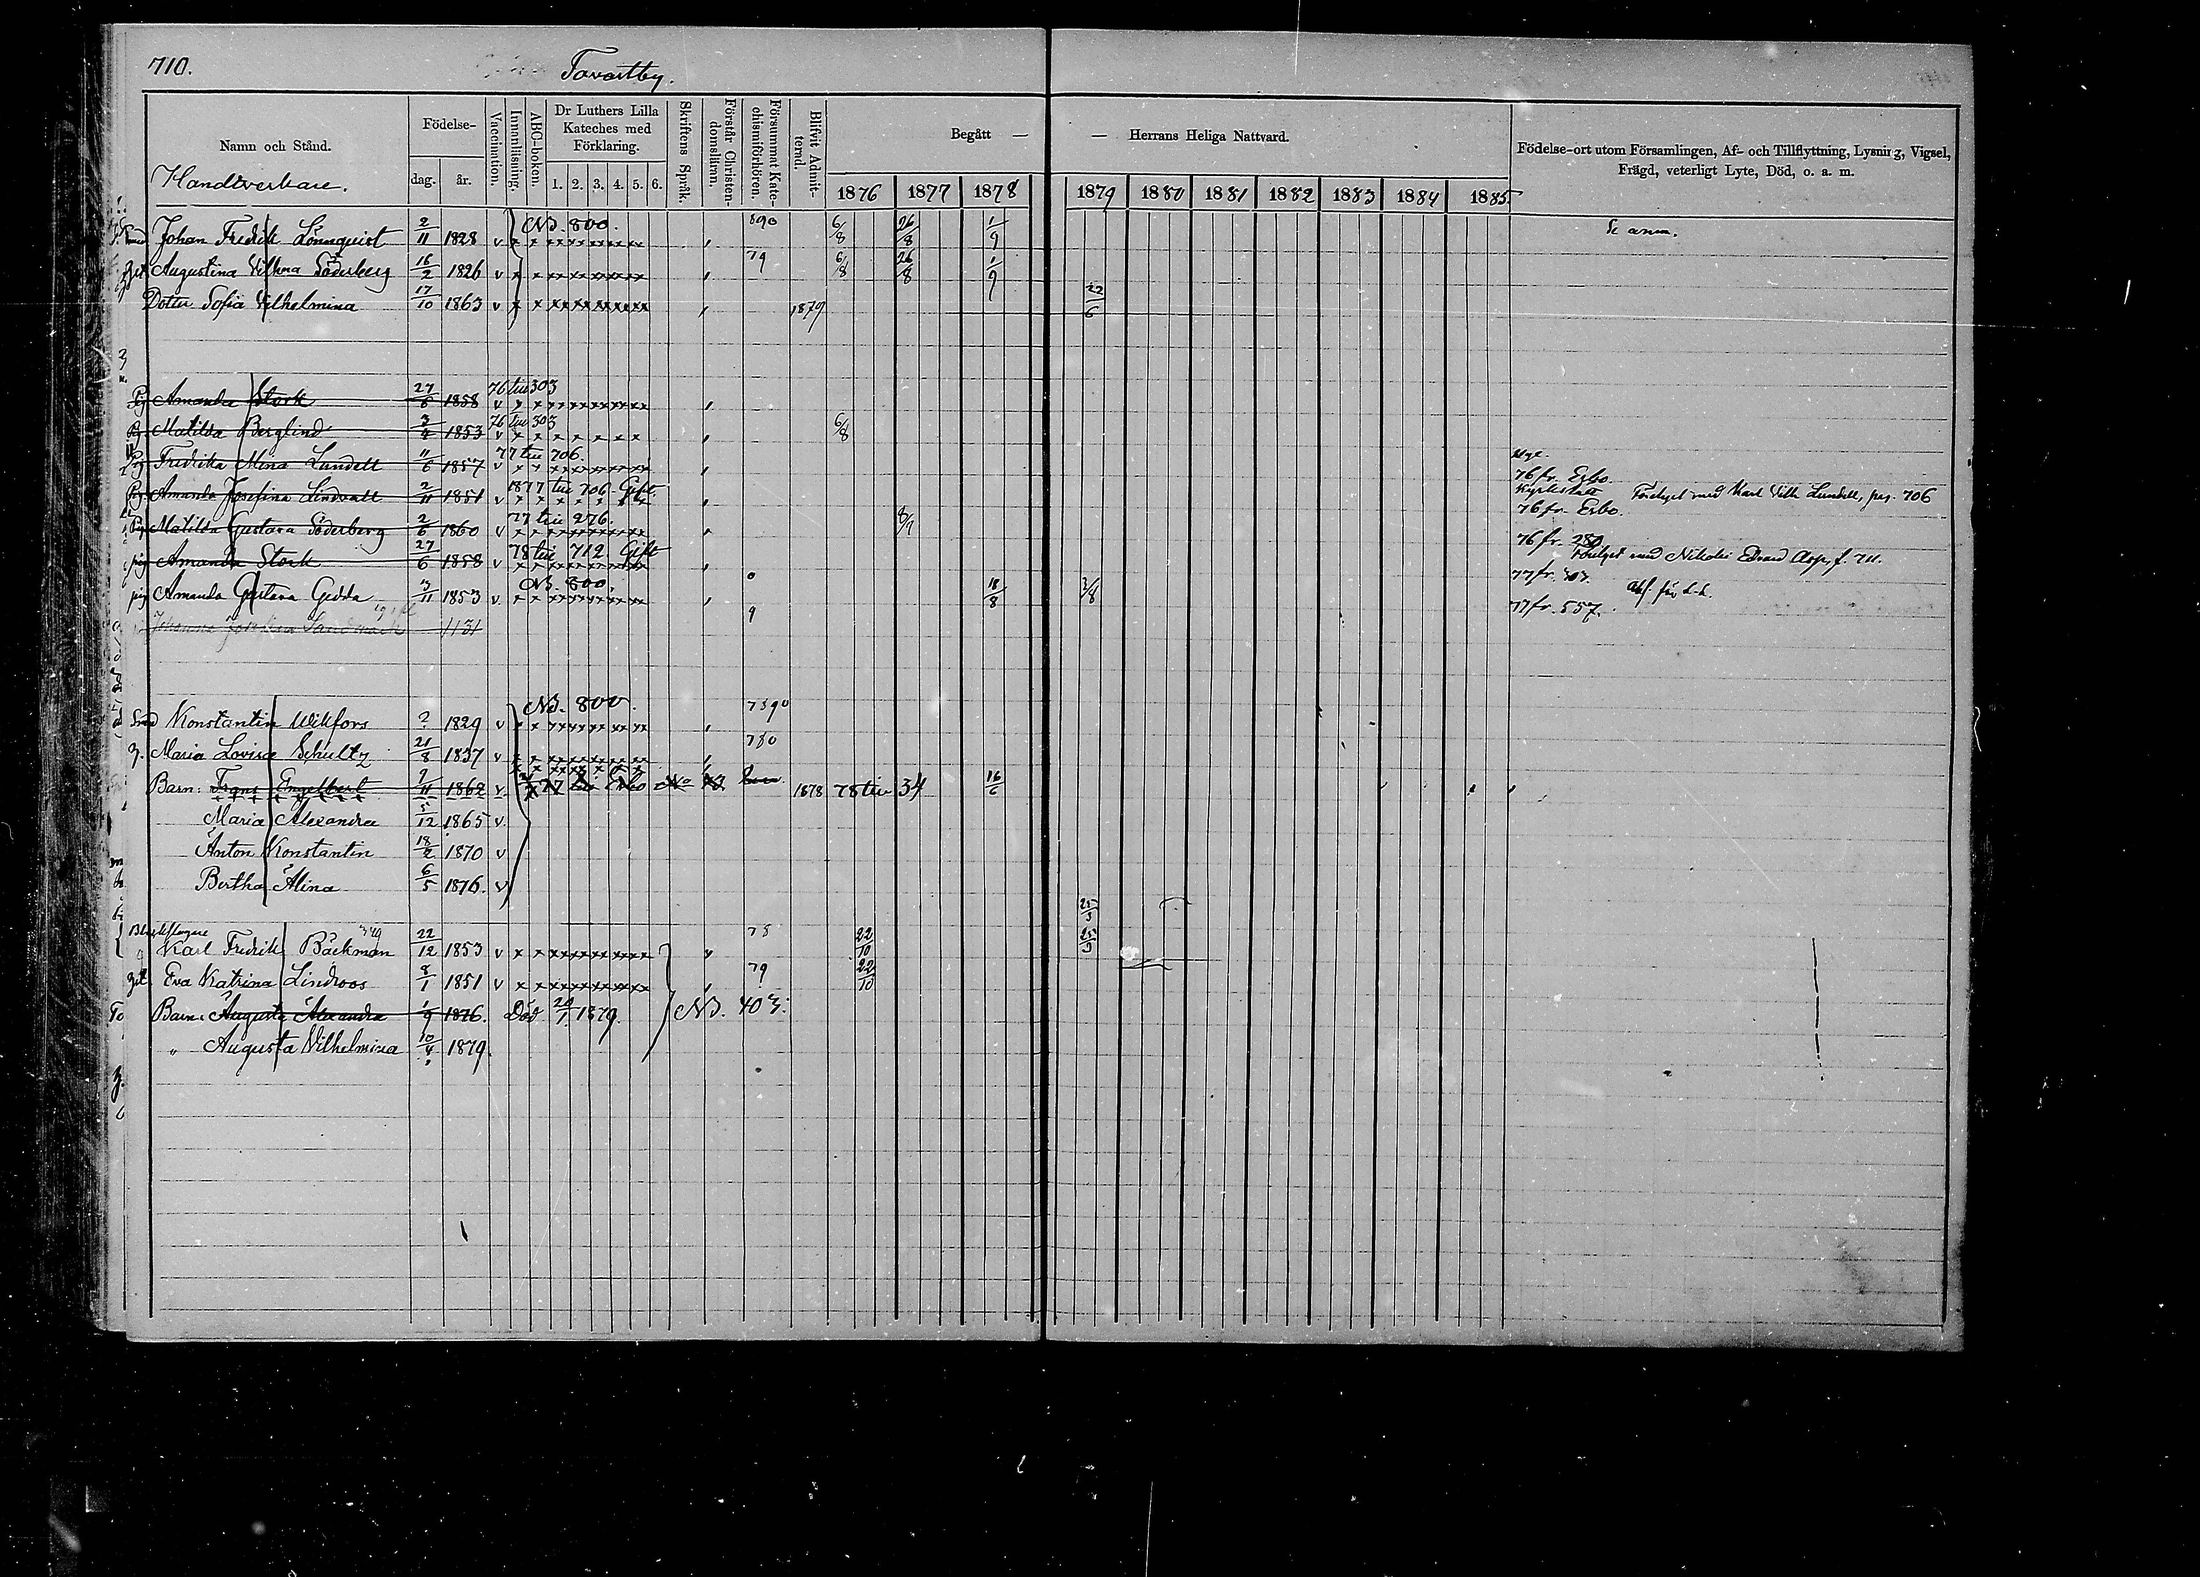 710.
Tavastby.
Namn och Stånd.
Födelse-
dag.
år.
Vaccination.
Innanläsning.
ABC-boken.
Dr Luthers Lilla
Kateches med
Förklaring.
1. 2. 3. 4. 5. 6.
Skriftens Språk.
Förstår Christen-
domsläran.
Försummat Kate-
chismiförhören.
Blifvit Admit-
terad.
Begått —
— Herrans Heliga Nattvard.
Födelse-ort utom Församlingen, Af- och Tillflyttning, Lysning, Vigsel,
Frägd, veterligt Lyte, Död, o. a. m.
Handtverkare.
1876 1877 1878 1879 1880 1881 1882 1883 1884 1885
Johan Fredrik Lönnquist 2/11 1828 v NB. 800. 6/8 26/8 1/9 Se anm.
Augustina Vilhma Söderberg 16/2 1826 v 79 6/8 26/8 1/9
Dotter Sofia Vilhelmina 17/10 1863 v 1879 22/6
Amanda Stork 27/6 1858 v 76 till 303
Matilda Berglind 3/2 1853 v 76 till 303 6/8
Fredrika Mina Lundell 11/6 1857 v 77 till 706.
76 fr. Esbo.
Amanda Josefina Lindvall 2/11 1851 v 1877 till 706 Gift.
Kyrkslätt Förlyst med Karl Vilh. Lundell, pag. 706
76 fr. Esbo.
Matilda Gustava Söderberg 2/6 1860 v 77 till 276. 8/7
76 fr. 280
pig Amanda Stork 27/6 1858 v 78 till 712 Gift
Förlyst med Nikolai Edvard Asp, f. 711.
77 fr. 303.
pig Amanda Gustava Gedda 3/11 1853 v. NB. 800. 18/8 3/8
77 fr. 557.
1131
Konstantin Wikfors ? 1829 v NB. 800.
Maria Lovisa Schultz 21/8 1837 v 780
Barn: Frans Engelbert 9/11 1862 v. 77 till Esbo 1878 78 till 34 16/6
Maria Alexandra 5/12 1865 v.
Anton Konstantin 18/2 1870 v
Bertha Alina 6/5 1876. v
Karl Fredrik Bäckman 22/12 1853 v 78 22/10 25/5
Eva Katrina Lindroos 8/1 1851 v 79 22/10
Barn: Augusta Alexandra 1/9 1876. Död 20/1 1879. NB. 403.
" Augusta Vilhelmina 10/4 1879.